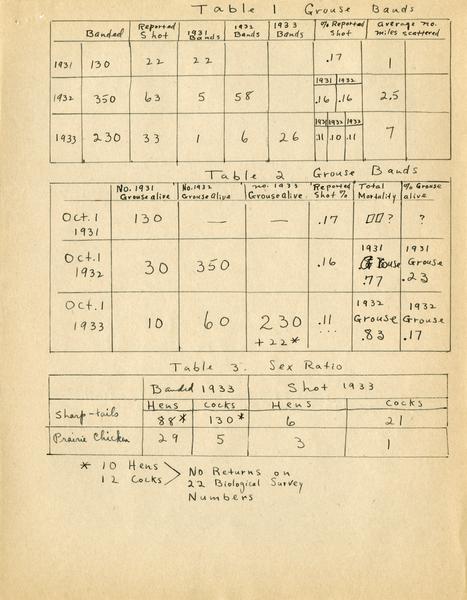 Table 1 Grouse Bands
Banded Reported Shot 1931 Bands 1932 Bands 1933 Bands % Reported Shot average no. miles scattered
1931 130 22 22 .17 1
1931 1932
1932 350 63 5 58 .16 .16 2.5
1931 1932 1933
1933 230 33 1 6 26 .11 .10 .11 7
Table 2 Grouse Bands
No. 1931 Grouse alive No. 1932 Grouse alive no. 1933 Grouse alive Reported Shot % Total Mortality % Grouse alive
Oct. 1 1931 130 — — .17 ? ?
Oct. 1 1932 30 350 .16 1931 Grouse .77 1931 Grouse .23
Oct. 1 1933 10 60 230 +22* .11 1932 Grouse .83 1932 Grouse .17
Table 3. Sex Ratio
Banded 1933 Shot 1933
Hens Cocks Hens Cocks
Sharp-tails 88* 130* 6 21
Prairie Chicken 29 5 3 1
* 10 Hens
12 Cocks
No Returns on
22 Biological Survey
Numbers